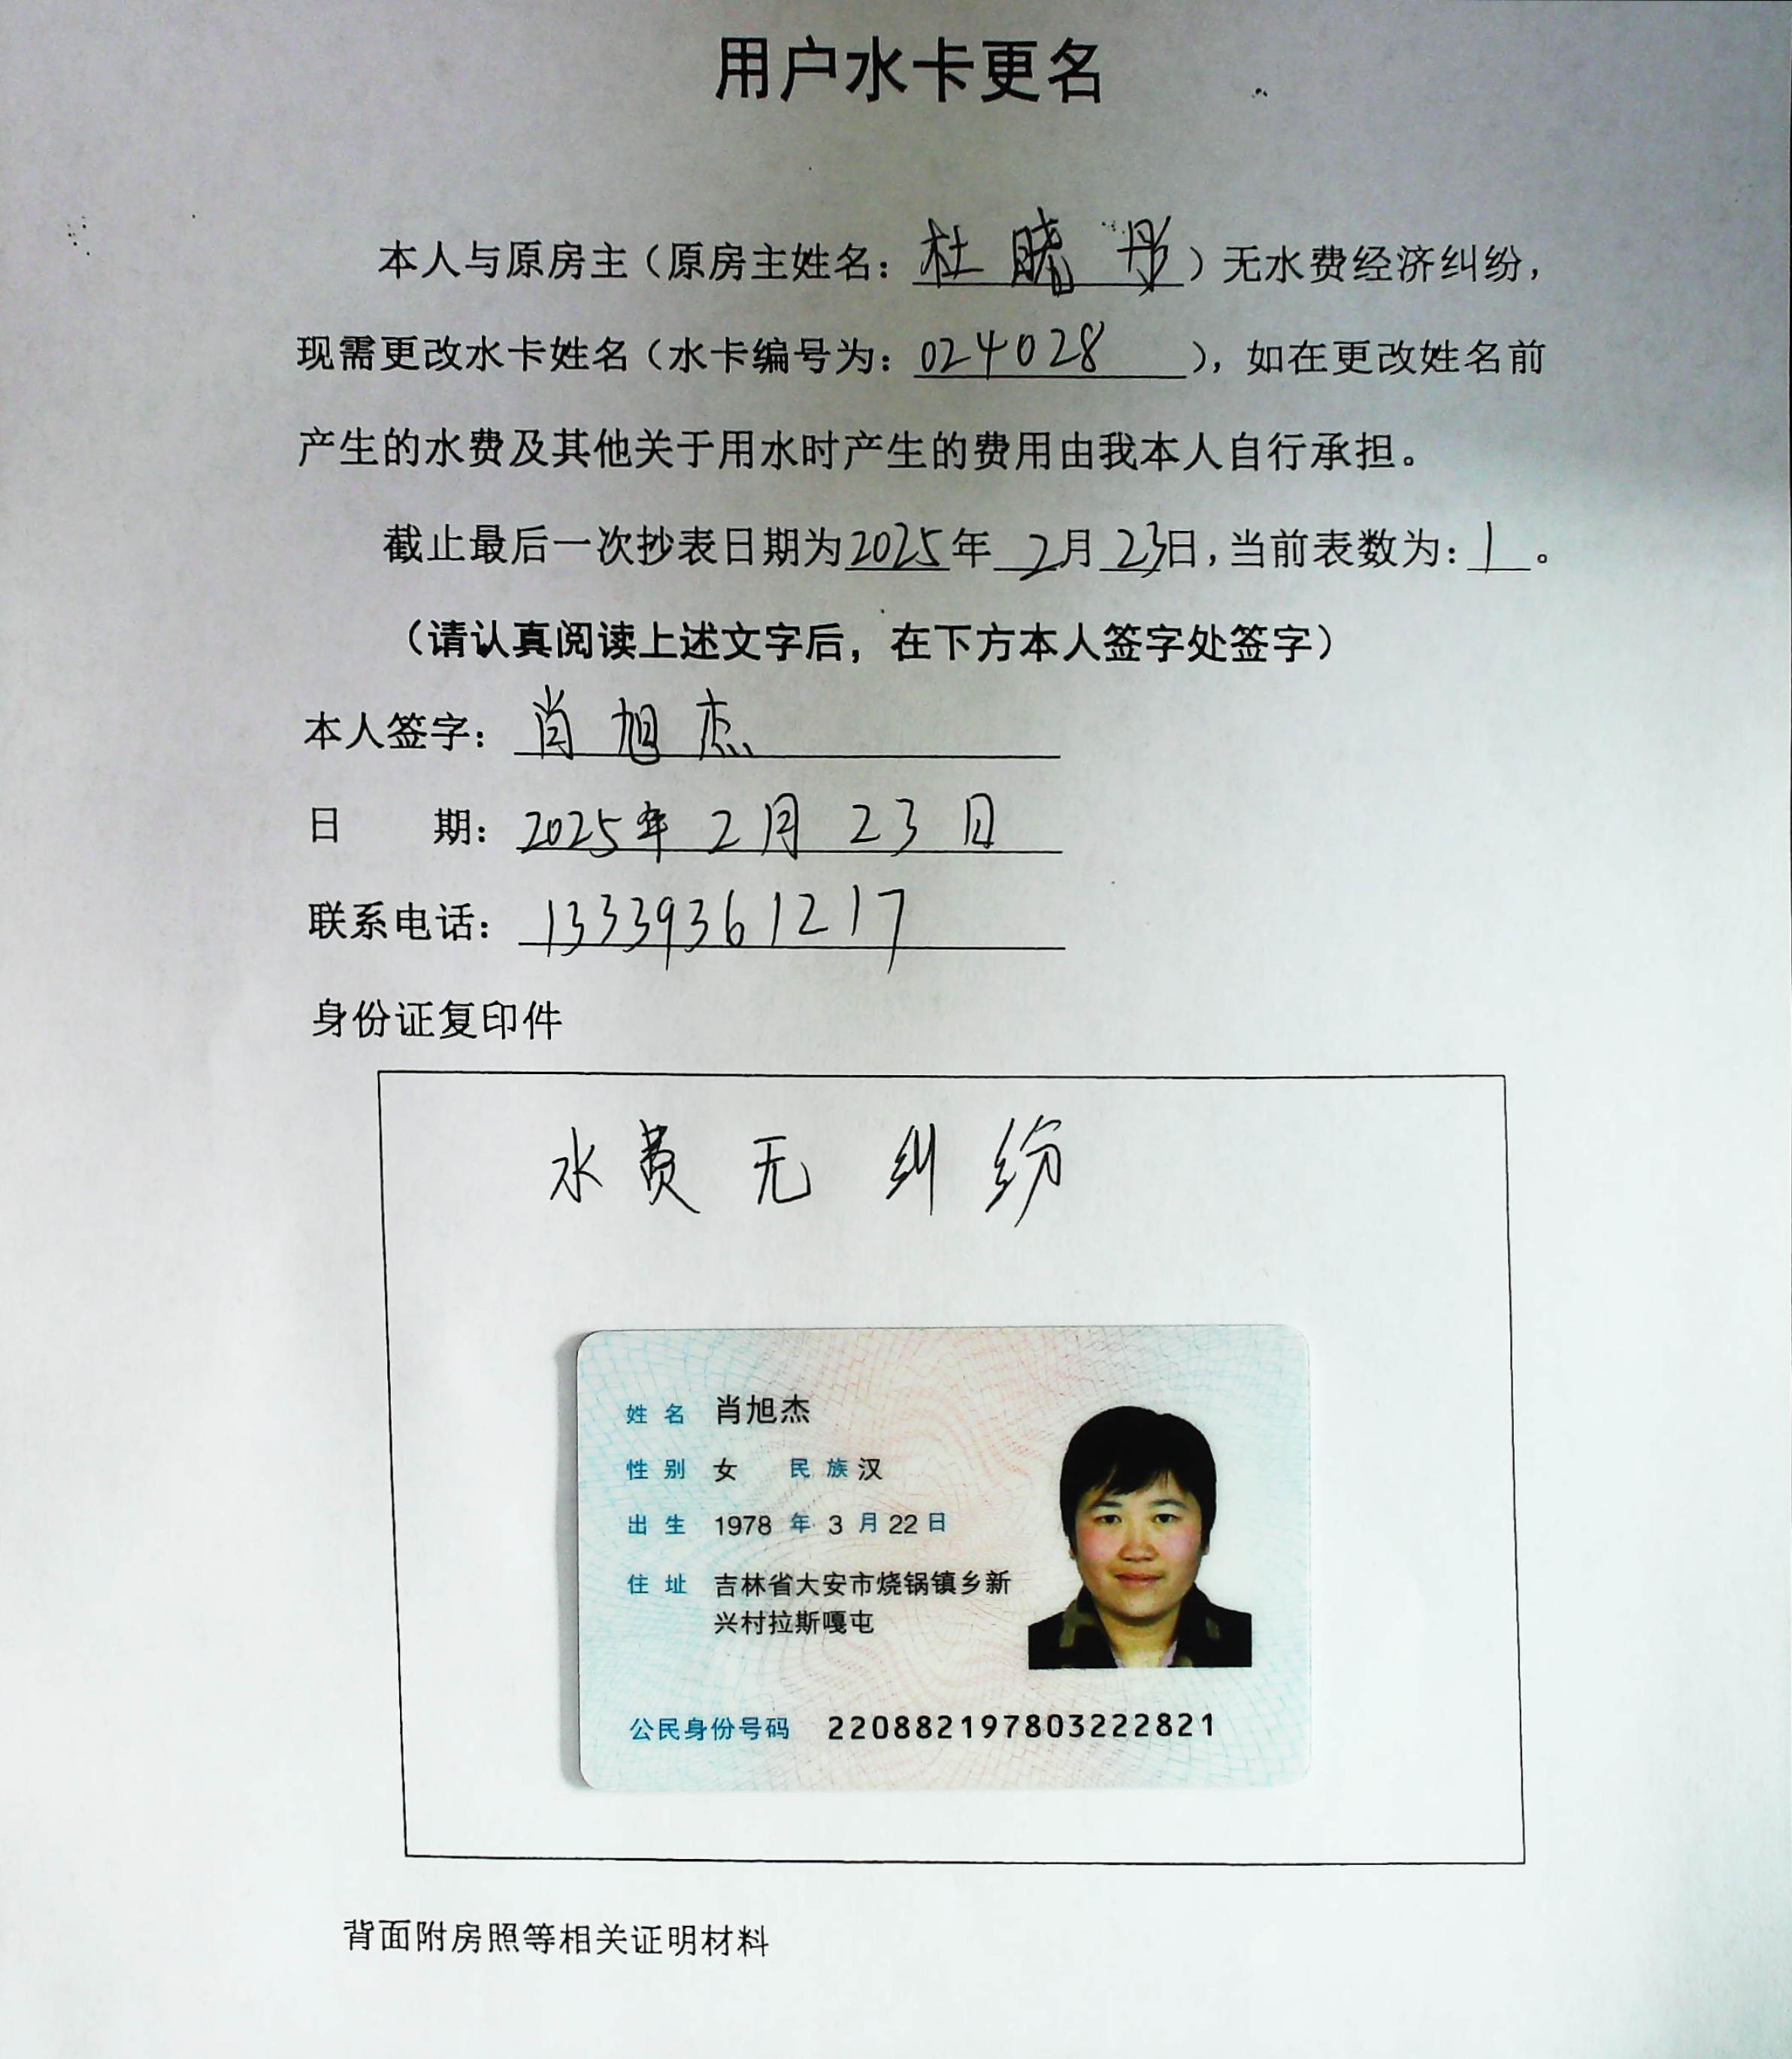 用户水卡更名
本人与原房主（原房主姓名：杜晓彤）无水费经济纠纷，
现需更改水卡姓名（水卡编号为：024028），如在更改姓名前
产生的水费及其他关于用水时产生的费用由我本人自行承担。
截止最后一次抄表日期为2025年2月23日，当前表数为：1。
（请认真阅读上述文字后，在下方本人签字处签字）
本人签字：肖旭杰
日 期：2025年2月23日
联系电话：13339361217
身份证复印件
水费无纠纷
姓名 肖旭杰
性别 女 民族 汉
出生 1978年3月22日
住址 吉林省大安市烧锅镇乡新
兴村拉斯嘎屯
公民身份号码 220882197803222821
背面附房照等相关证明材料